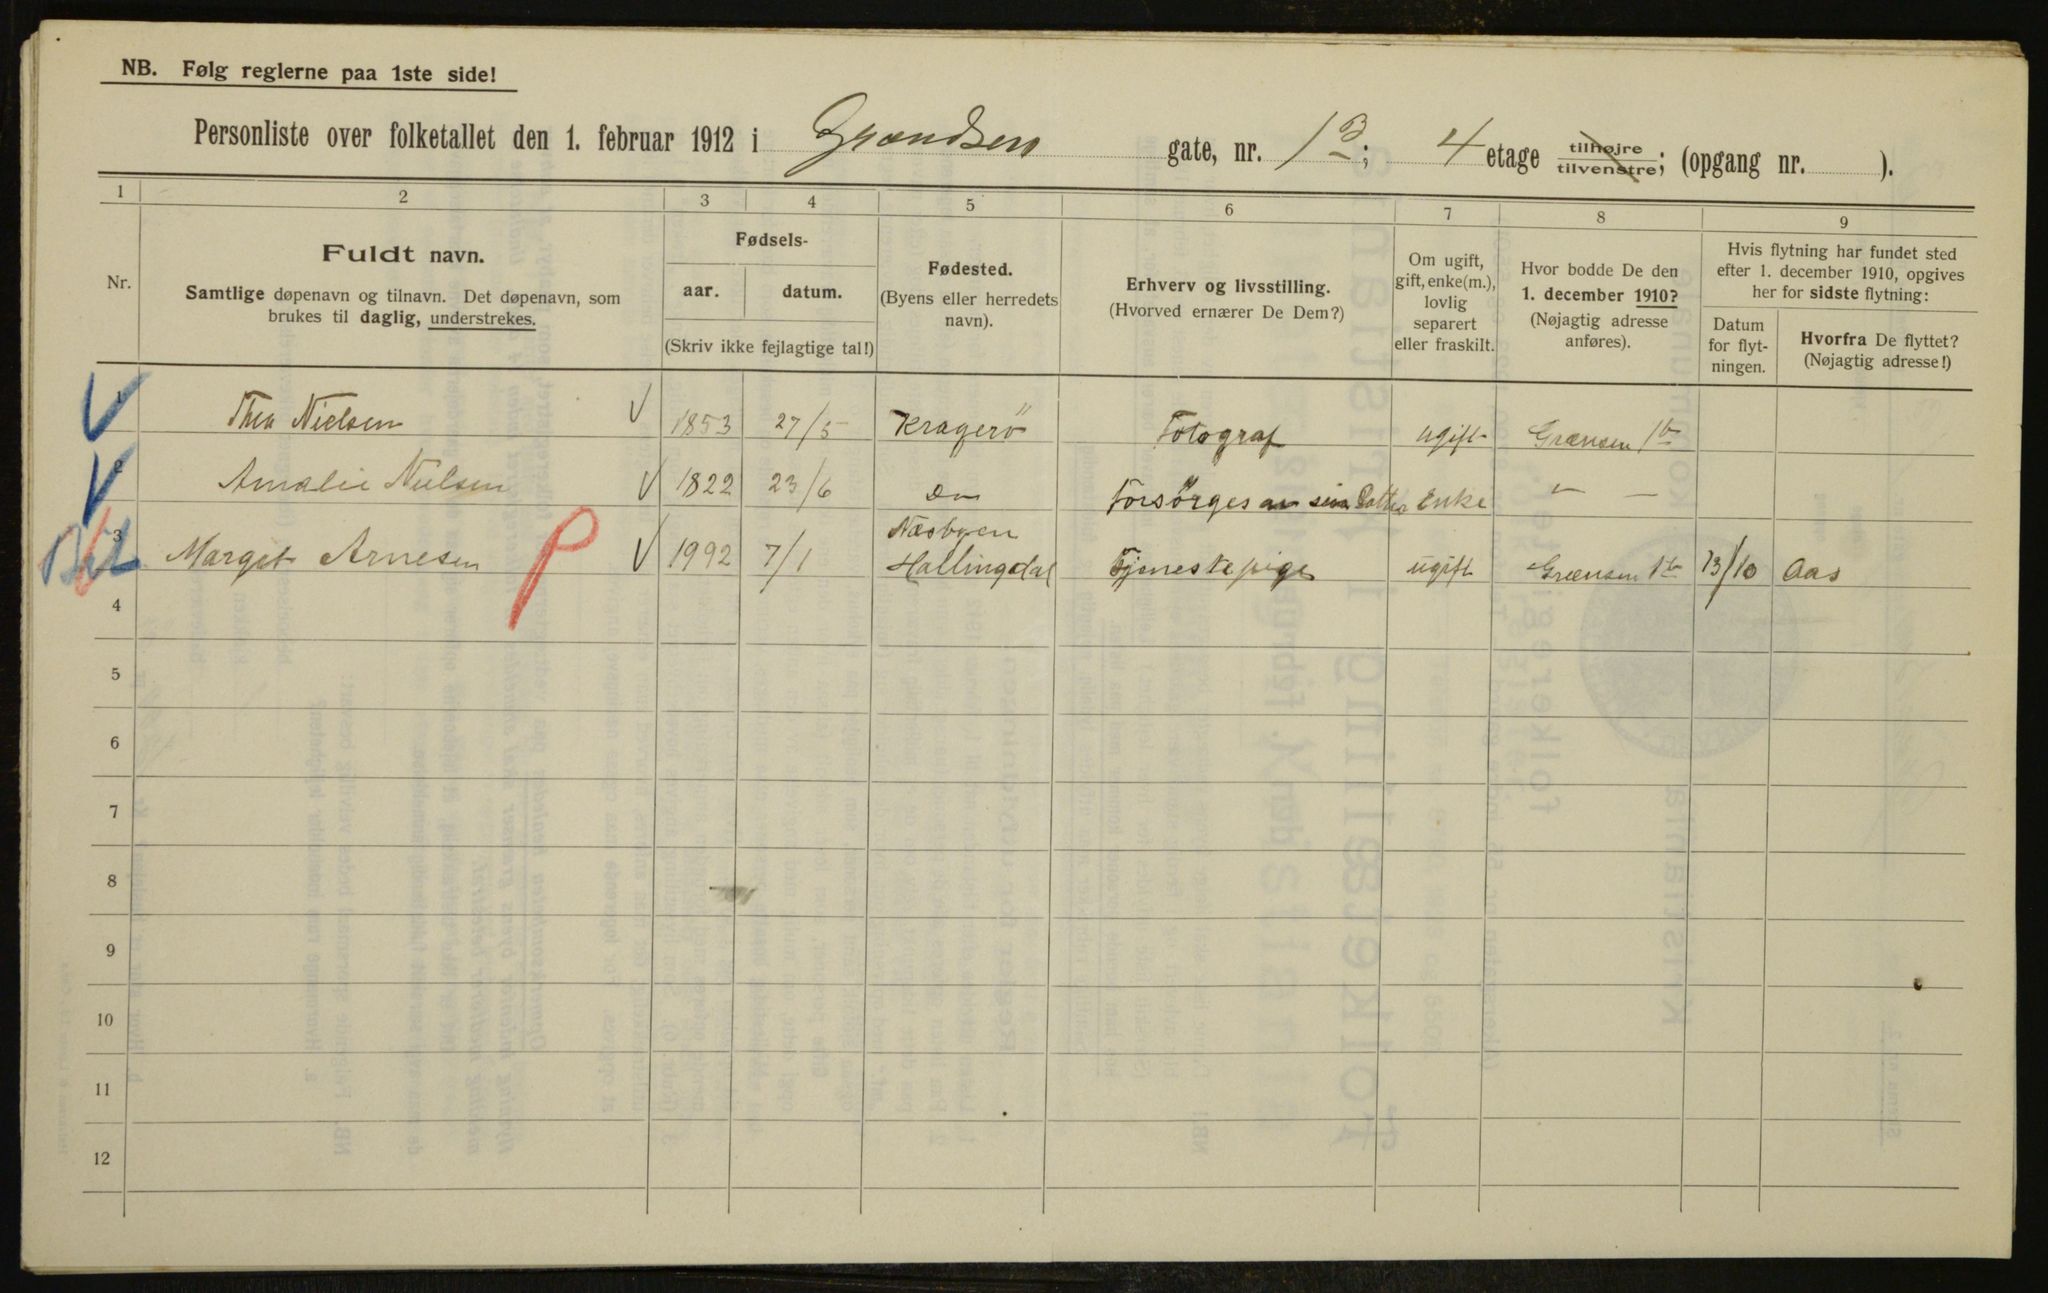 NB. Følg reglerne paa 1ste side!
Personliste over folketallet den 1. februar 1912 i Grændsen gate, nr. 1B; 4 etage tilhøjre/tilvenstre; (opgang nr. ).
1 2 3 4 5 6 7 8 9
Nr.
Fuldt navn.
Samtlige døpenavn og tilnavn. Det døpenavn, som
brukes til daglig, understrekes.
Fødsels-
aar. datum.
(Skriv ikke fejlagtige tal!)
Fødested.
(Byens eller herredets
navn).
Erhverv og livsstilling.
(Hvorved ernærer De Dem?)
Om ugift,
gift, enke(m.),
lovlig
separert
eller fraskilt.
Hvor bodde De den
1. december 1910?
(Nøjagtig adresse
anføres).
Hvis flytning har fundet sted
efter 1. december 1910, opgives
her for sidste flytning:
Datum
for flyt-
ningen.
Hvorfra De flyttet?
(Nøjagtig adresse!)
1 Thea Nielsen 1853 27/5 Kragerö Fotograf ugift Grænsen 1b
2 Amalie Nielsen 1822 23/6 Do Forsörges av sin Datter Enke " —
3 Margit Arnesen P 1992 7/1 Næsbyen
Hallingdal Tjenestepige ugift Grænsen 1b 13/10 Aas
4
5
6
7
8
9
10
11
12